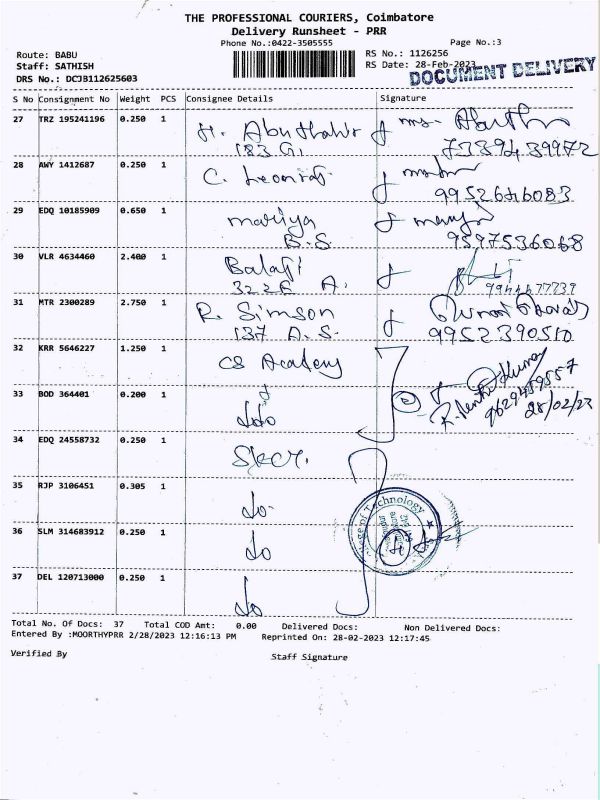 THE PROFESSIONAL COURIERS, Coimbatore
Delivery Runsheet - PRR
Phone No.:0422-3505555
Page No.:3
Route: BABU
RS No.: 1126256
Staff: SATHISH
RS Date: 28-Feb-2023
DRS No.: DCJB112625603
DOCUMENT DELIVERY
S No Consignment No Weight PCS Consignee Details Signature
27 TRZ 195241196 0.250 1
183 G1
28 AWY 1412687 0.250 1 C.
9952646083
29 EDQ 10185909 0.650 1 mariya
B.S. 9597536068
30 VLR 4634460 2.400 1 Balaji
322F A.
31 MTR 2300289 2.750 1 R. Simson
137 A.S. 9952390510
32 KRR 5646227 1.250 1 CS Academy
33 BOD 364401 0.200 1
9629459557
28/02/23
34 EDQ 24558732 0.250 1
35 RJP 3106451 0.305 1 do
36 SLM 314683912 0.250 1 do
37 DEL 120713000 0.250 1 do
of Technology
Total No. Of Docs: 37 Total COD Amt: 0.00 Delivered Docs: Non Delivered Docs:
Entered By :MOORTHYPRR 2/28/2023 12:16:13 PM Reprinted On: 28-02-2023 12:17:45
Verified By Staff Signature